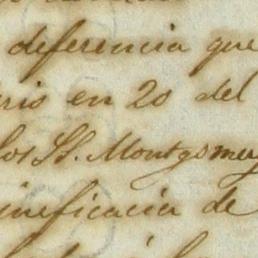 deferencia que
en 20 del
los SS. Montgomery
ineficacia de